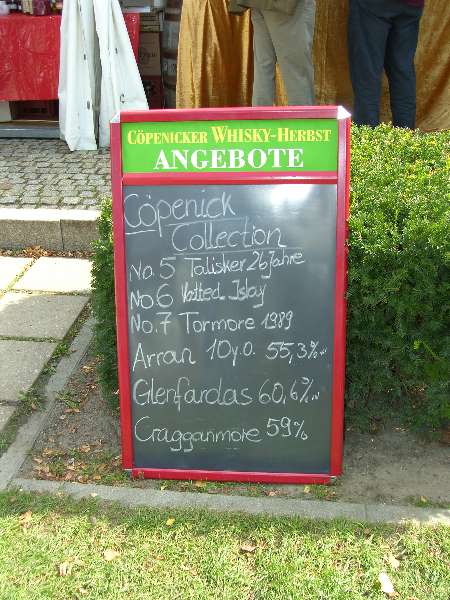 CÖPENICKER WHISKY-HERBST
ANGEBOTE
Cöpenick
Collection
No. 5 Talisker 26 Jahre
No 6 Vatted Islay
No. 7 Tormore 1989
Arran 10y.o. 55,3%
Glenfardas 60,6%
Cragganmore 59%